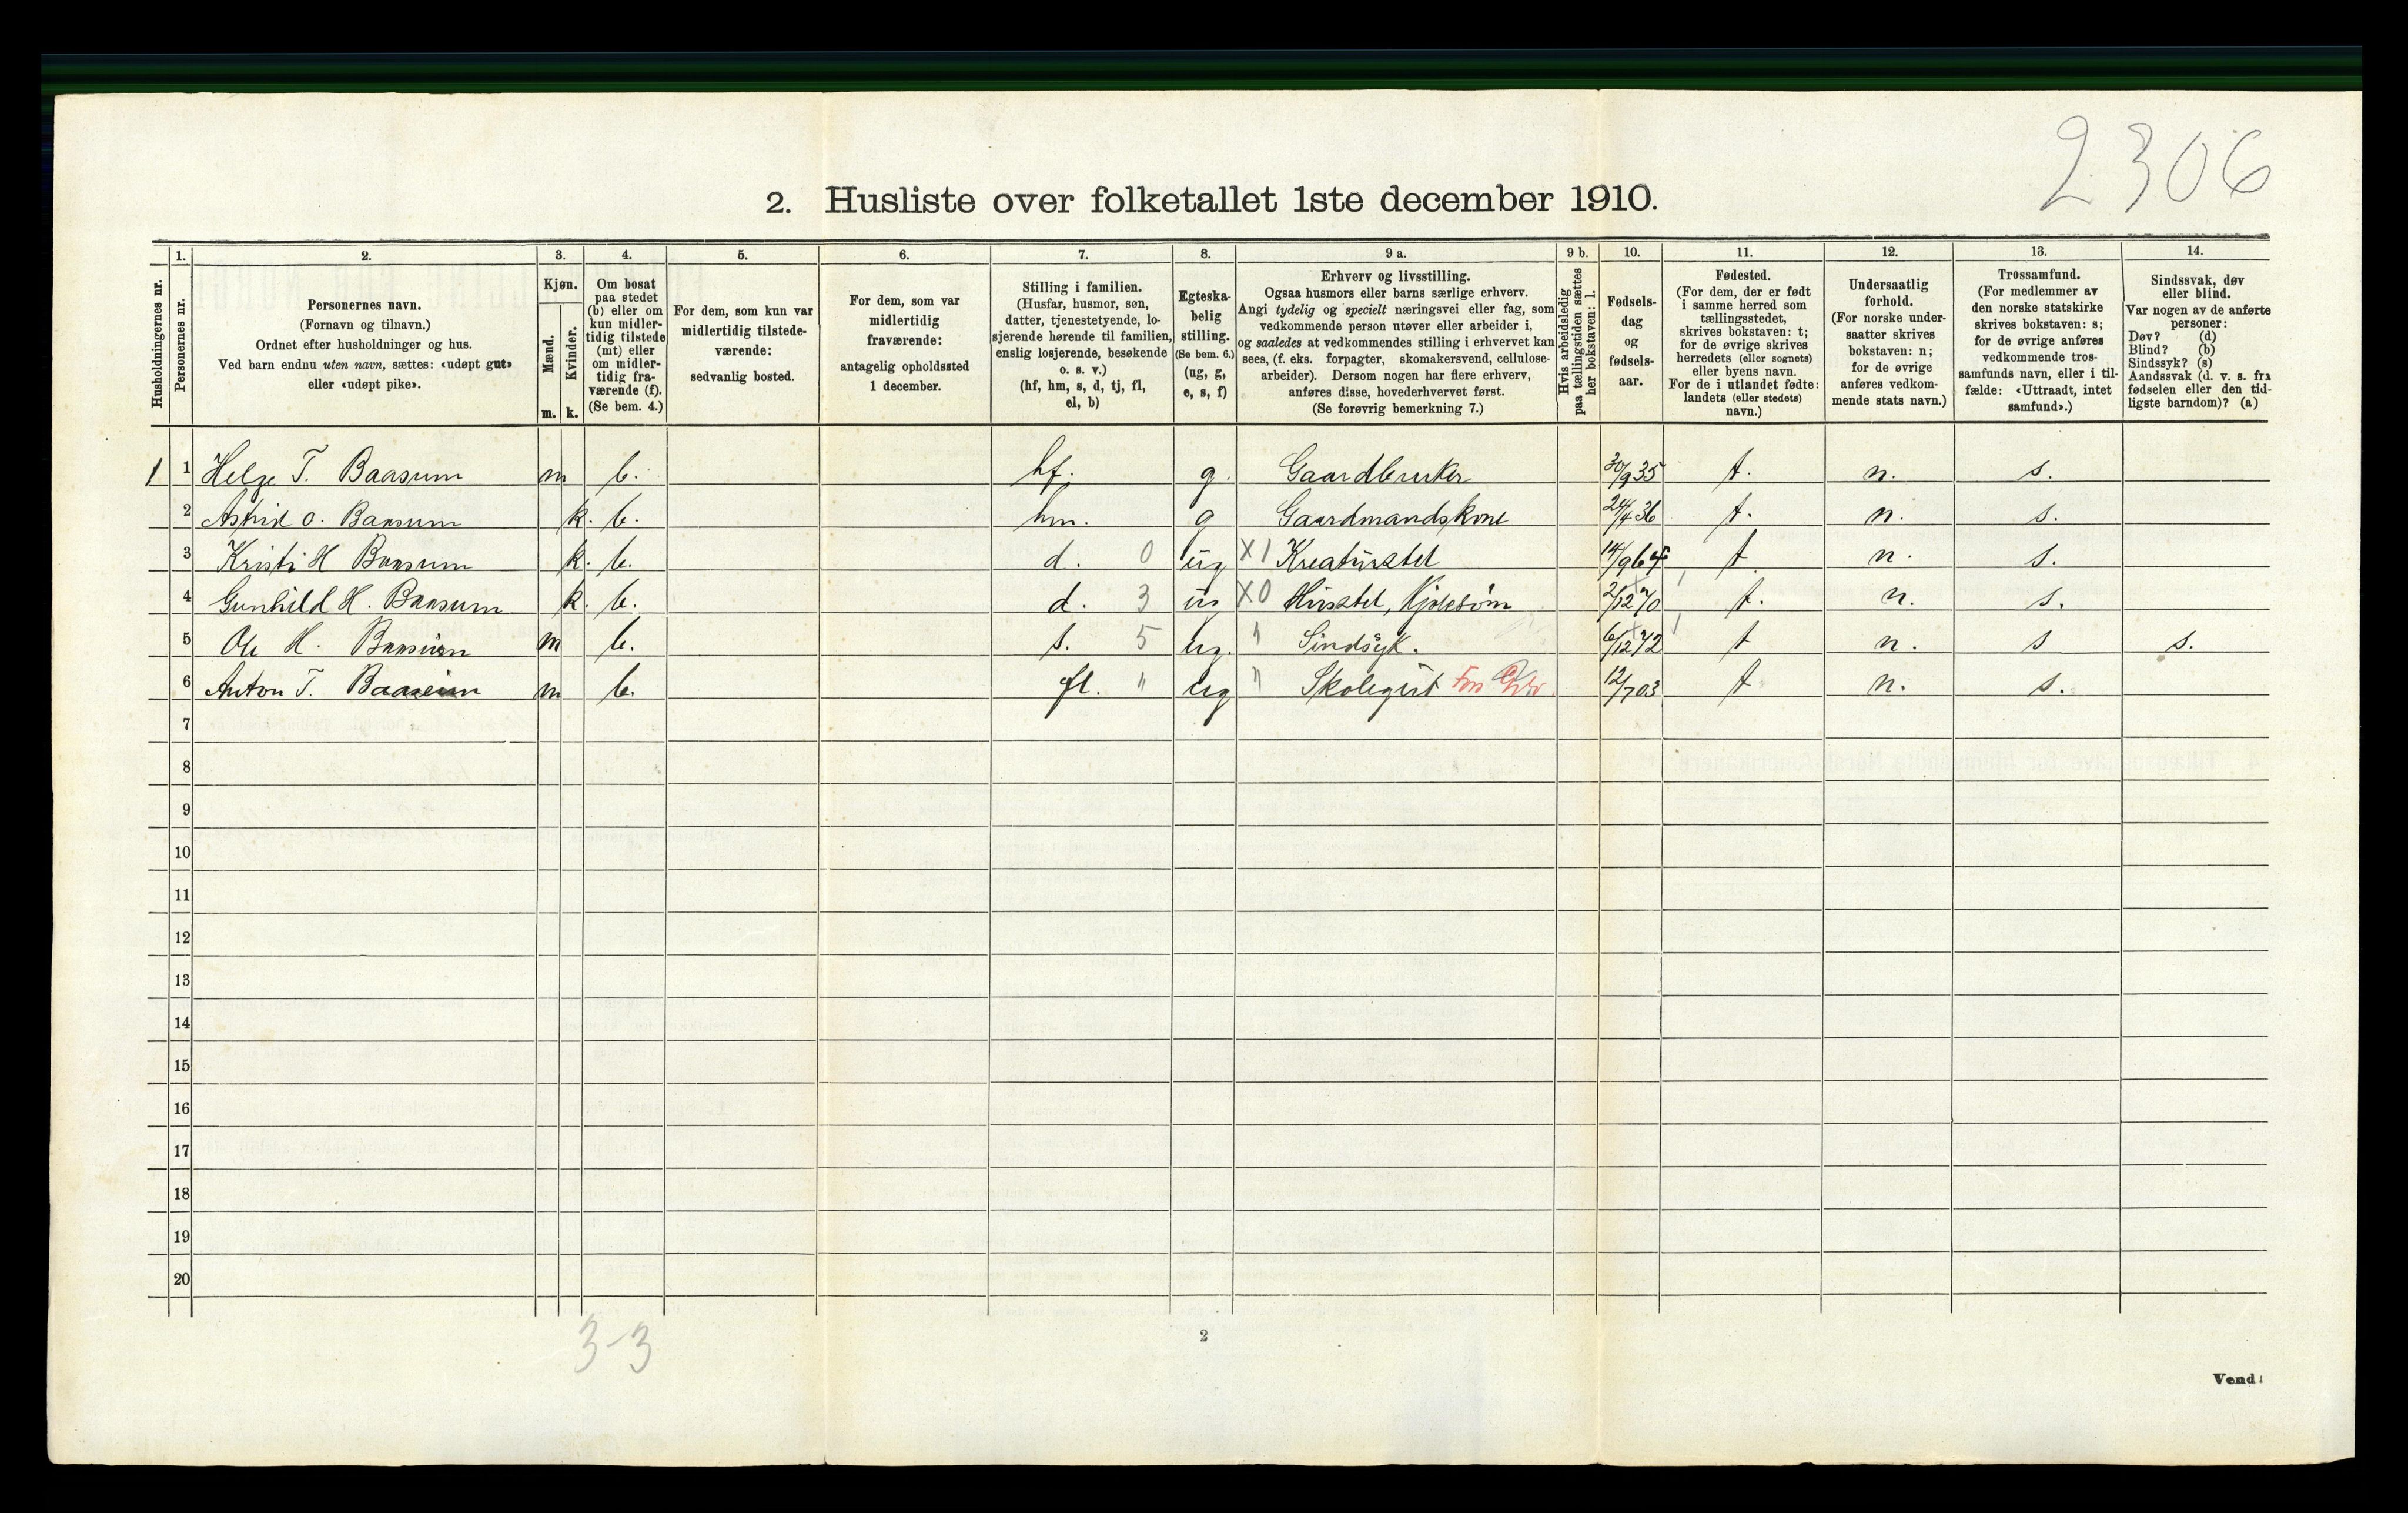 2306
2. Husliste over folketallet 1ste december 1910.
Husholdningernes nr.
1. Personernes nr.
2. Personernes navn.
(Fornavn og tilnavn.)
Ordnet efter husholdninger og hus.
Ved barn endnu uten navn, sættes: «udøpt gut»
eller «udøpt pike».
3. Kjøn.
Mænd. m.
Kvinder. k.
4. Om bosat
paa stedet
(b) eller om
kun midler-
tidig tilstede
(mt) eller
om midler-
tidig fra-
værende (f).
(Se bem. 4.)
5. For dem, som kun var
midlertidig tilstede-
værende:
sedvanlig bosted.
6. For dem, som var
midlertidig
fraværende:
antagelig opholdssted
1 december.
7. Stilling i familien.
(Husfar, husmor, søn,
datter, tjenestetyende, lo-
sjerende hørende til familien,
enslig losjerende, besøkende
o. s. v.)
(hf, hm, s, d, tj, fl,
el, b)
8. Egteska-
belig
stilling.
(Se bem. 6.)
(ug, g,
e, s, f)
9 a. Erhverv og livsstilling.
Ogsaa husmors eller barns særlige erhverv.
Angi tydelig og specielt næringsvei eller fag, som
vedkommende person utøver eller arbeider i,
og saaledes at vedkommendes stilling i erhvervet kan
sees, (f. eks. forpagter, skomakersvend, cellulose-
arbeider). Dersom nogen har flere erhverv,
anføres disse, hovederhvervet først.
(Se forøvrig bemerkning 7.)
9 b. Hvis arbeidsledig
paa tællingstiden sættes
her bokstaven: l.
10. Fødsels-
dag
og
fødsels-
aar.
11. Fødested.
(For dem, der er født
i samme herred som
tællingsstedet,
skrives bokstaven: t;
for de øvrige skrives
herredets (eller sognets)
eller byens navn.
For de i utlandet fødte:
landets (eller stedets)
navn.)
12. Undersaatlig
forhold.
(For norske under-
saatter skrives
bokstaven: n;
for de øvrige
anføres vedkom-
mende stats navn.)
13. Trossamfund.
(For medlemmer av
den norske statskirke
skrives bokstaven: s;
for de øvrige anføres
vedkommende tros-
samfunds navn, eller i til-
fælde: «Uttraadt, intet
samfund».)
14. Sindssvak, døv
eller blind.
Var nogen av de anførte
personer:
Døv? (d)
Blind? (b)
Sindssyk? (s)
Aandssvak (d. v. s. fra
fødselen eller den tid-
ligste barndom)? (a)
1 1 Helge T. Baasum m b. hf. g. Gaardbruker 30/9 35 t. n. s.
2 Astrid O. Baasum k. b. hm. g Gaardmandskone 24/4 36 t. n. s.
3 Kristi H Baasum k. b. d. 0 ug X1 Kreaturstel 14/9 64 t n. s.
4 Gunhild H. Baasum k. b. d. 3 ug X0 Husstel, Kjolesøm 2/12 70 t. n. s.
5 Ole H. Baasum m b. s. 5 ug. " Sindsyk. 6/12 72 t n. s s.
6 Anton T. Baasum m b. fl. " ug " Skolegut 12/7 03 t n. s.
7
8
9
10
11
12
13
14
15
16
17
18
19
20
3-3
2
Vend!